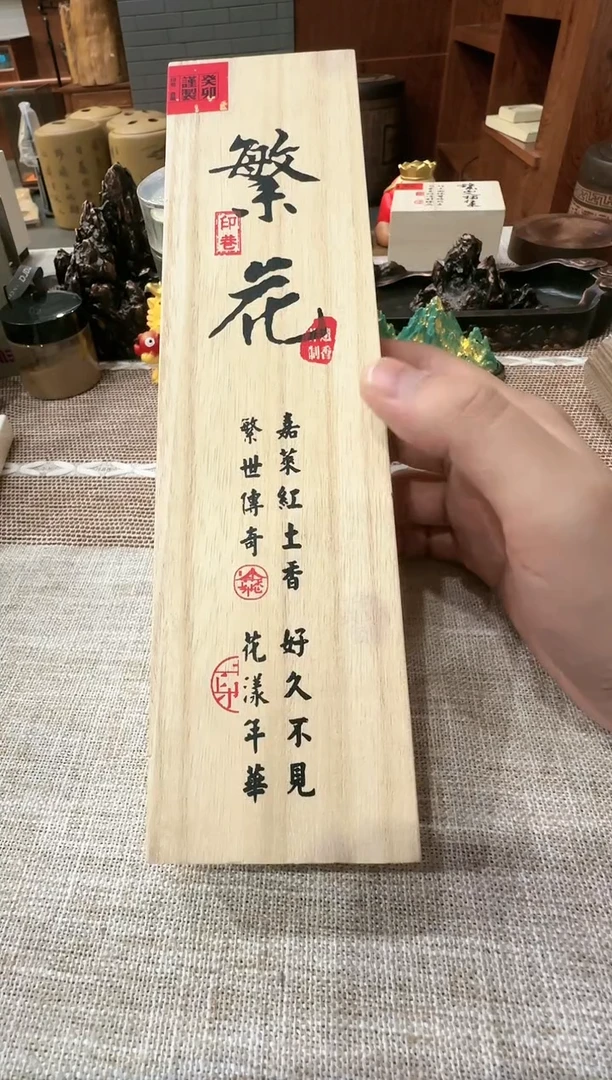 癸卯
謹製
繁花
印巷
嘉萊紅土香
繁世傳奇
好久不見
花漾年華